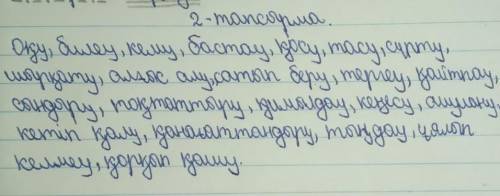 2-тапсырма.
Оқу, билеу, келу, бастау, қосу, тасу, сүрту,
шарқату, алғыс алу, сатып беру, тергеу, қайтпау,
сындыру, тоқтаттыру, қимылдау, кеңесу, ашулану,
кетіп қалу, қанағаттандыру, тыңдау, ұялып
келмеу, қорқып қашу.